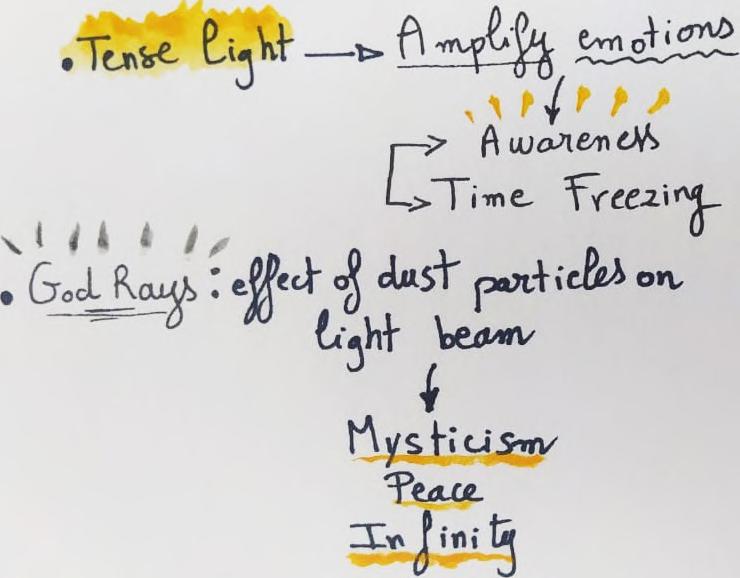 • Tense light → Amplify emotions
Awareness
Time Freezing
• God Rays : effect of dust particles on
light beam
Mysticism
Peace
Infinity